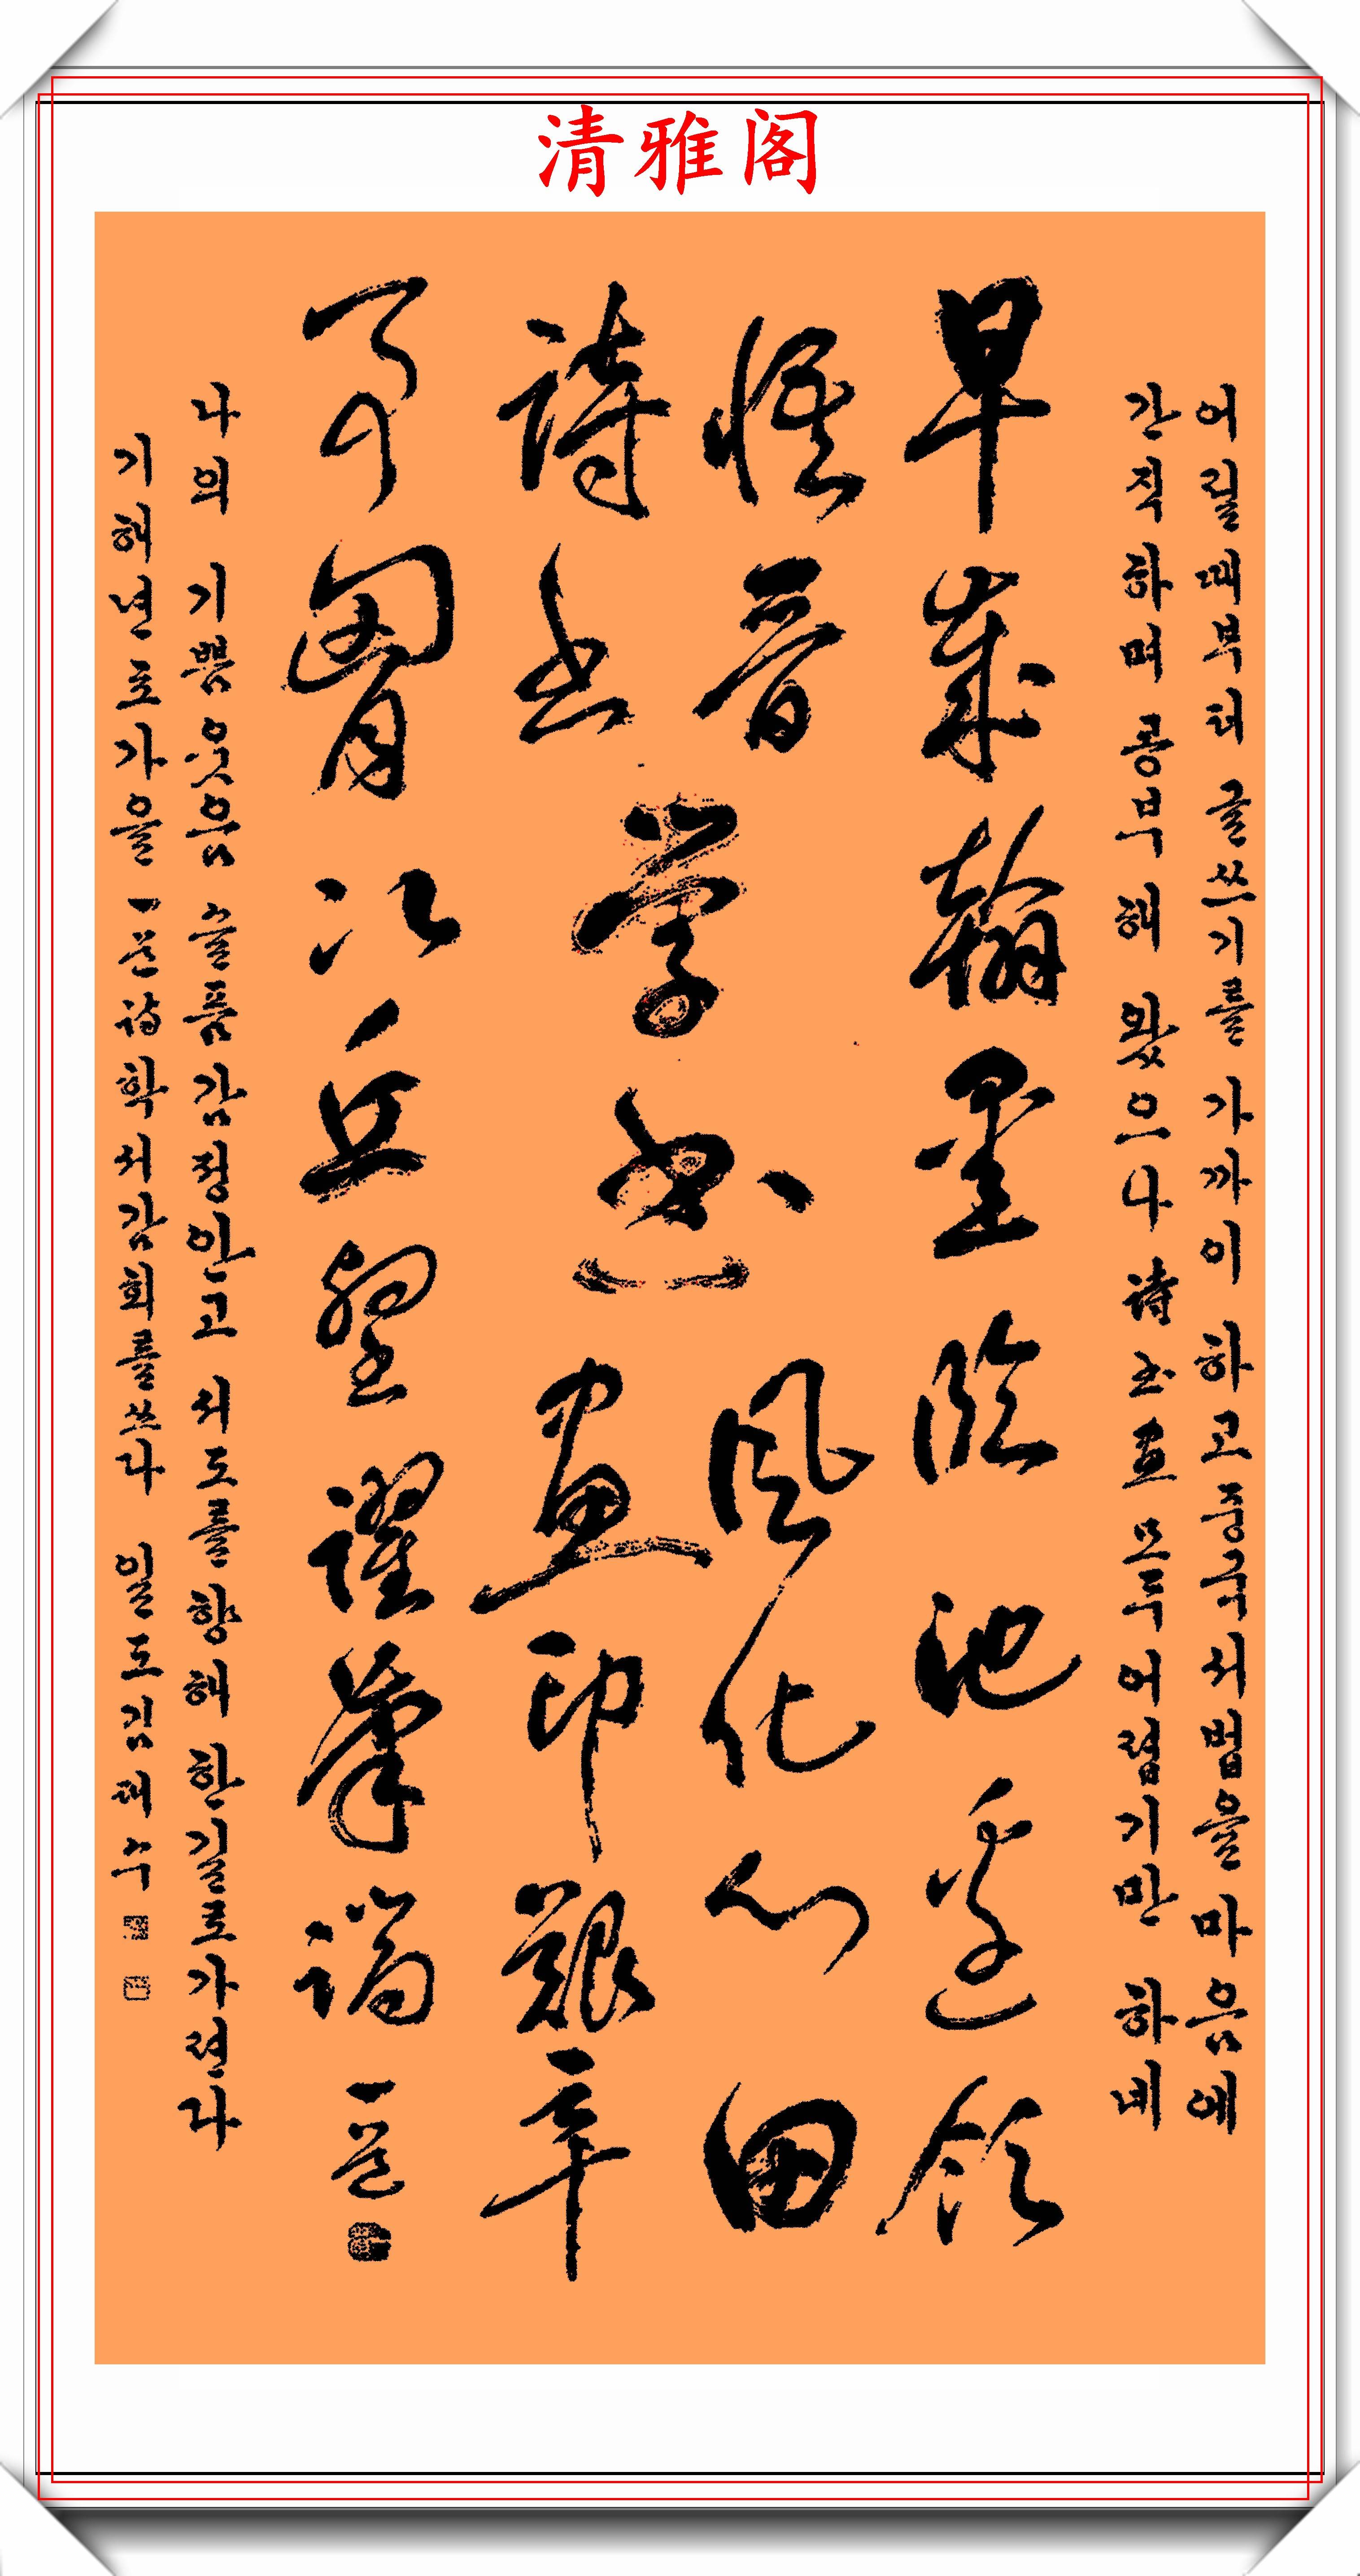 清雅阁
어릴때부터 글쓰기를 가까이 하고 중국서법을 마음에
간직하며 공부해 왔으나 詩书畫 모두 어렵기만 하네
早歲翰墨臨池邊领
悟晉风化心田
学书
詩书畫印艱辛
胸次丘壑筆端 一道
나의 기쁨 웃음 슬픔 감정안고 서도를 향해 한길로가련다
기해년초가을 一道詩 학서감회를쓰다 일도김태수